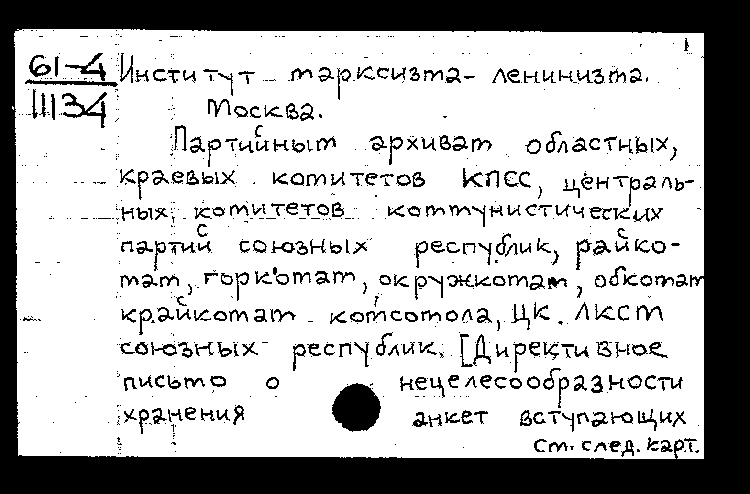 1
61-4
11134
Институт марксизма-ленинизма.
Москва.
Партийным архивам областных,
краевых комитетов КПСС, централь-
ных комитетов коммунистических
партий союзных республик, райко-
мам, горкомам, окружкомам, обкомам
крайкомам комсомола, ЦК. ЛКСМ
союзных республик. [Директивное
письмо о нецелесообразности
хранения анкет вступающих
См. след. карт.